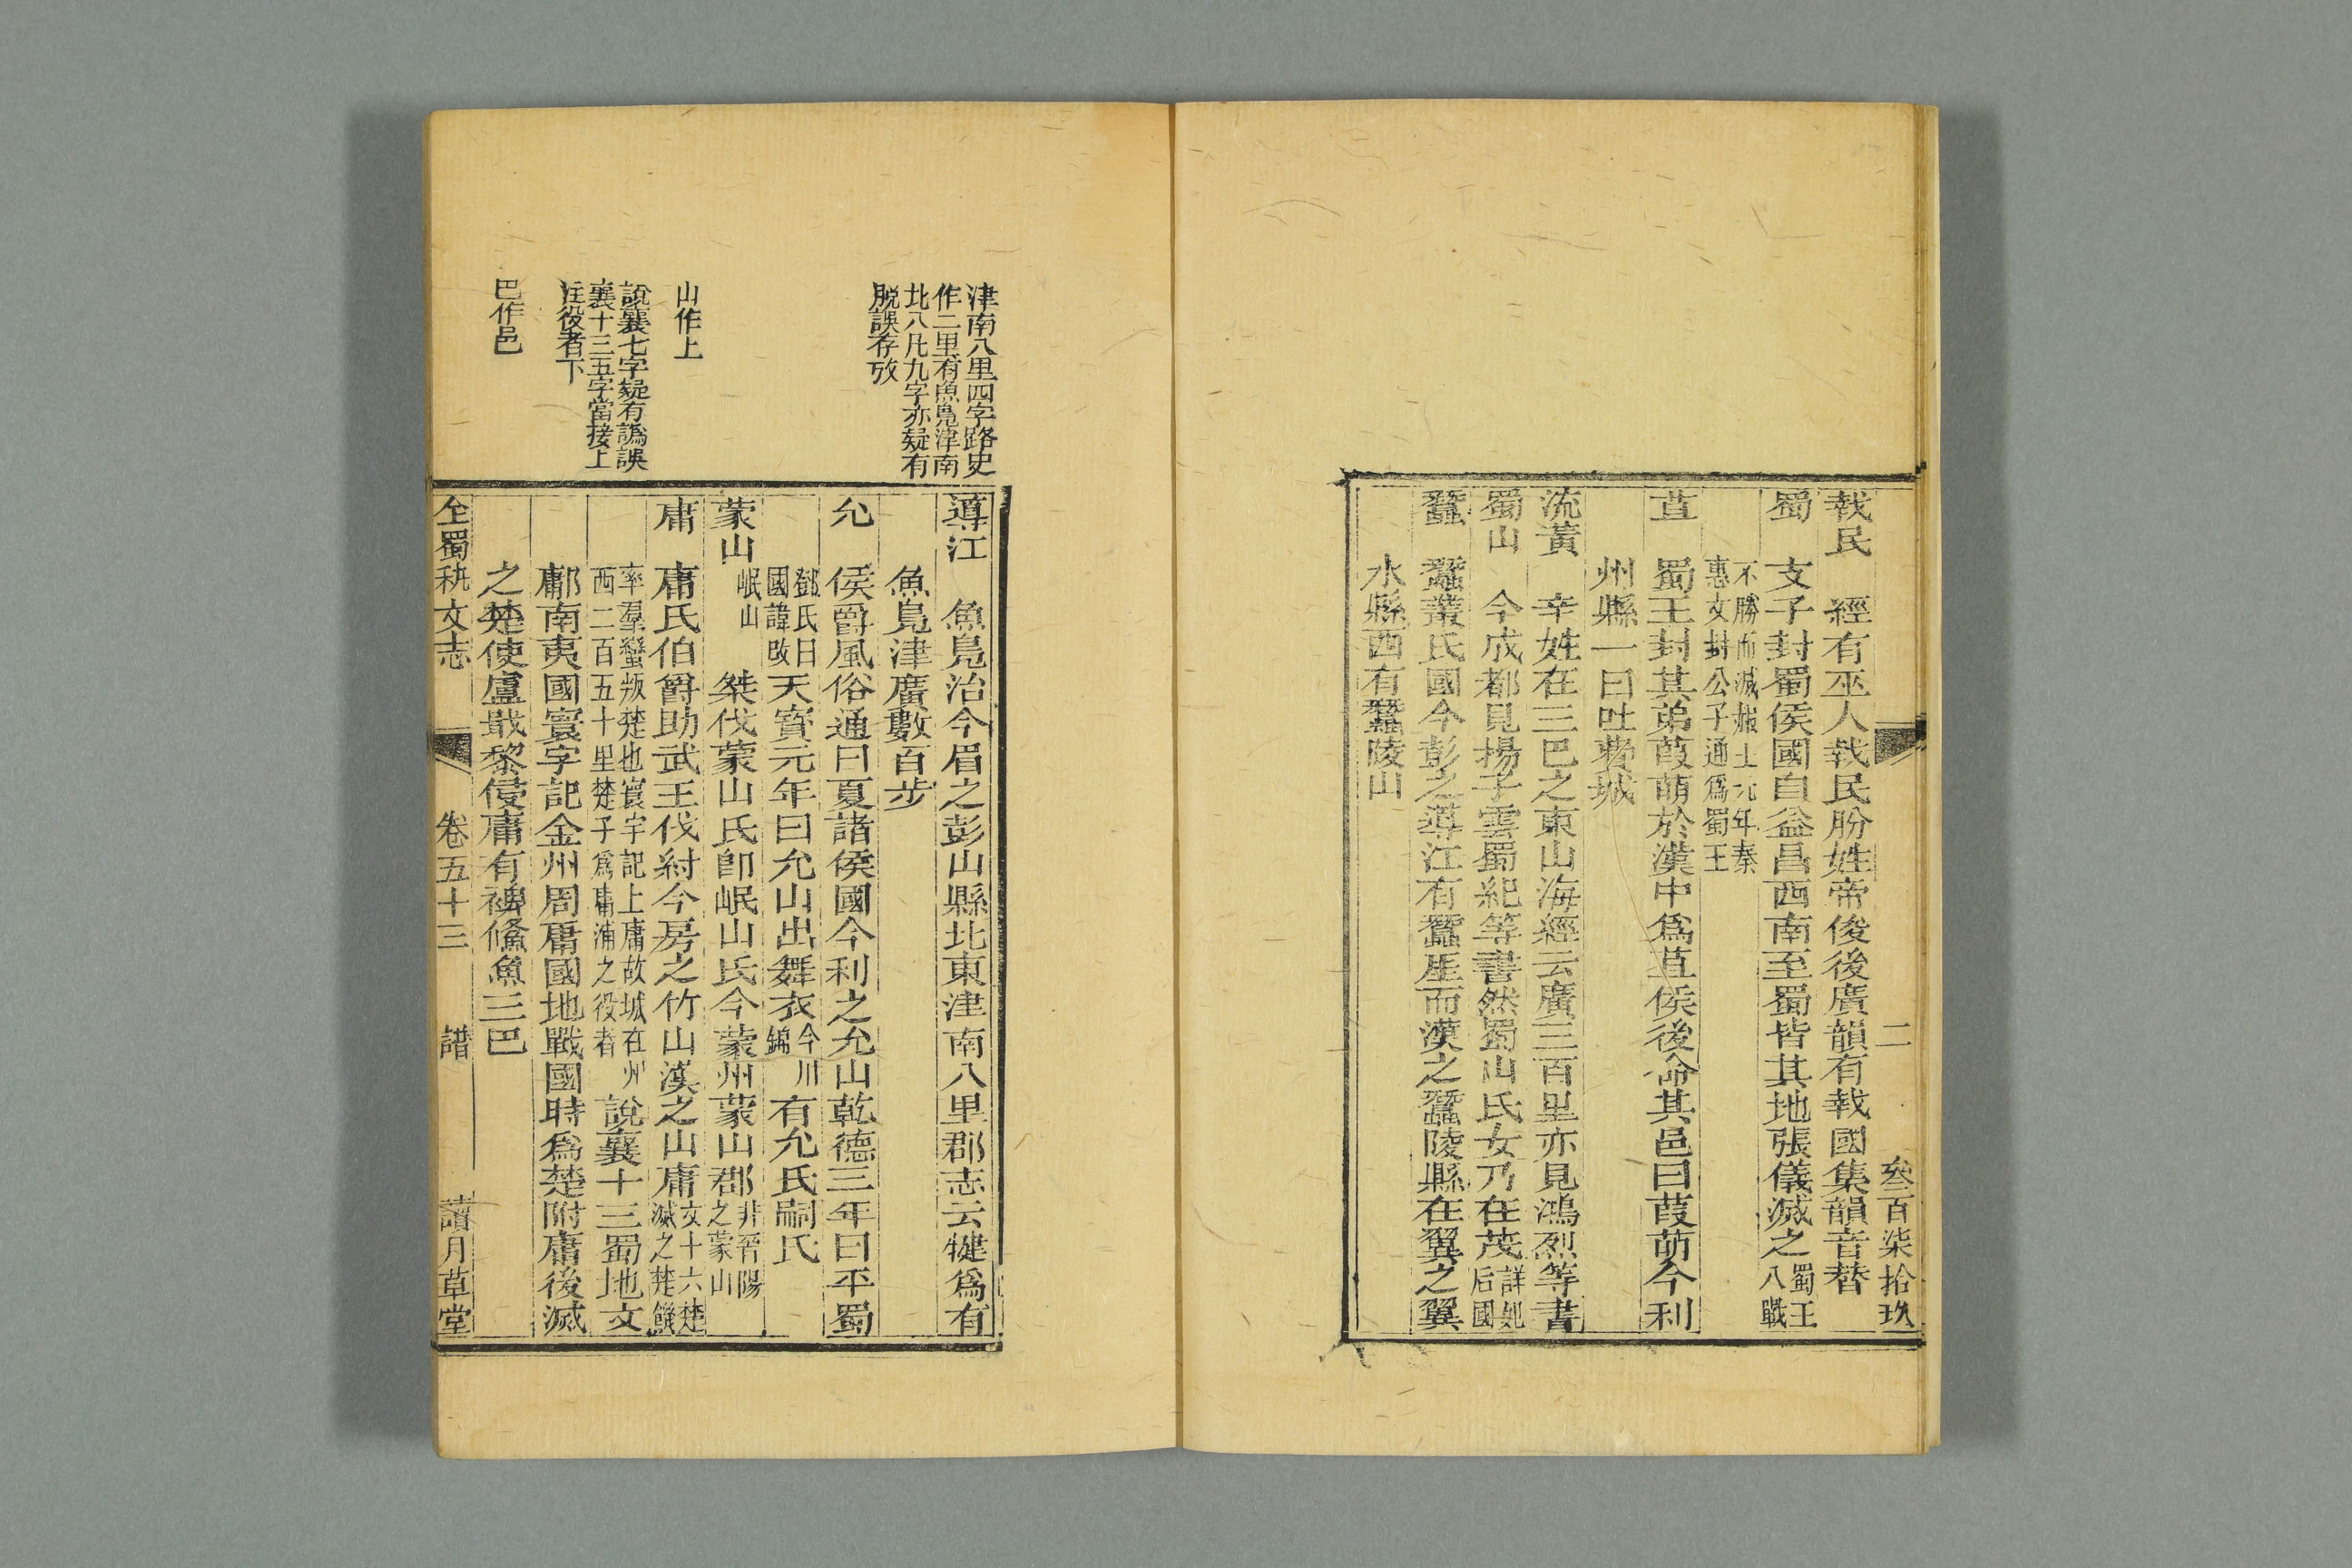 二　叄百柒拾玖
㦲民　經有巫人㦲民肦姓帝俊後廣韻有㦲國集韻音替
蜀　支子封蜀侯國自益昌西南至蜀皆其地張儀滅之蜀王八戰
不勝而滅赧王元年秦惠文封公子通爲蜀王
苴　蜀王封其弟葭萌於漢中爲苴侯後命其邑曰葭萌今利
州縣一曰吐費城
流黃　辛姓在三巴之東山海經云廣三百里亦見鴻烈等書
蜀山　今成都見揚子雲蜀紀等書然蜀山氏女乃在茂詳妃后國
蠶　蠶叢氏國今彭之導江有蠶崖而漢之蠶陵縣在翼之翼
水縣西有蠶陵山
津南八里四字路史
作二里有魚鳧津南
北八凡九字亦疑有
脫誤存攷
山作上
說襄七字疑有譌誤
襄十三五字當接上
注役者下
巴作邑
導江　魚鳧治今眉之彭山縣北東津南八里郡志云犍爲有
魚鳧津廣數百步
允　侯爵風俗通曰夏諸侯國今利之允山乾德三年曰平蜀
鄧氏曰國諱改天寶元年曰允山出舞衣今川錦有允氏嗣氏
蒙山岷山　桀伐蒙山氏卽岷山氏今蒙州蒙山郡非晉陽之蒙山
庸　庸氏伯爵助武王伐紂今房之竹山漢之山庸文十六楚滅之楚饑
率羣蠻叛楚也寰宇記上庸故城在州西二百五十里楚子爲庸浦之役者說襄十三蜀地文
鄘南夷國寰字記金州周庸國地戰國時爲楚附庸後滅
之楚使盧戢黎侵庸有裨鯈魚三巴
全蜀秇文志　卷五十三　譜　讀月草堂